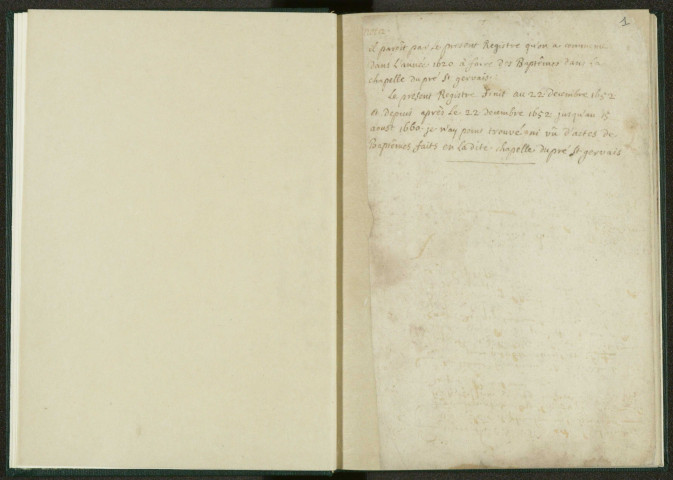 1
il paroît par le present Registre qu'on a commencé
dans l'année 1620 à faire des Baptêmes dans la
chapelle du pré St gervais.
Le present Registre finit au 22 decembre 1652
et depuis après le 22 decembre 1652 jusqu'au
aoust 1660. je n'ay point trouvé ni vû d'actes de
Baptêmes faits en la dite chapelle du pré St gervais